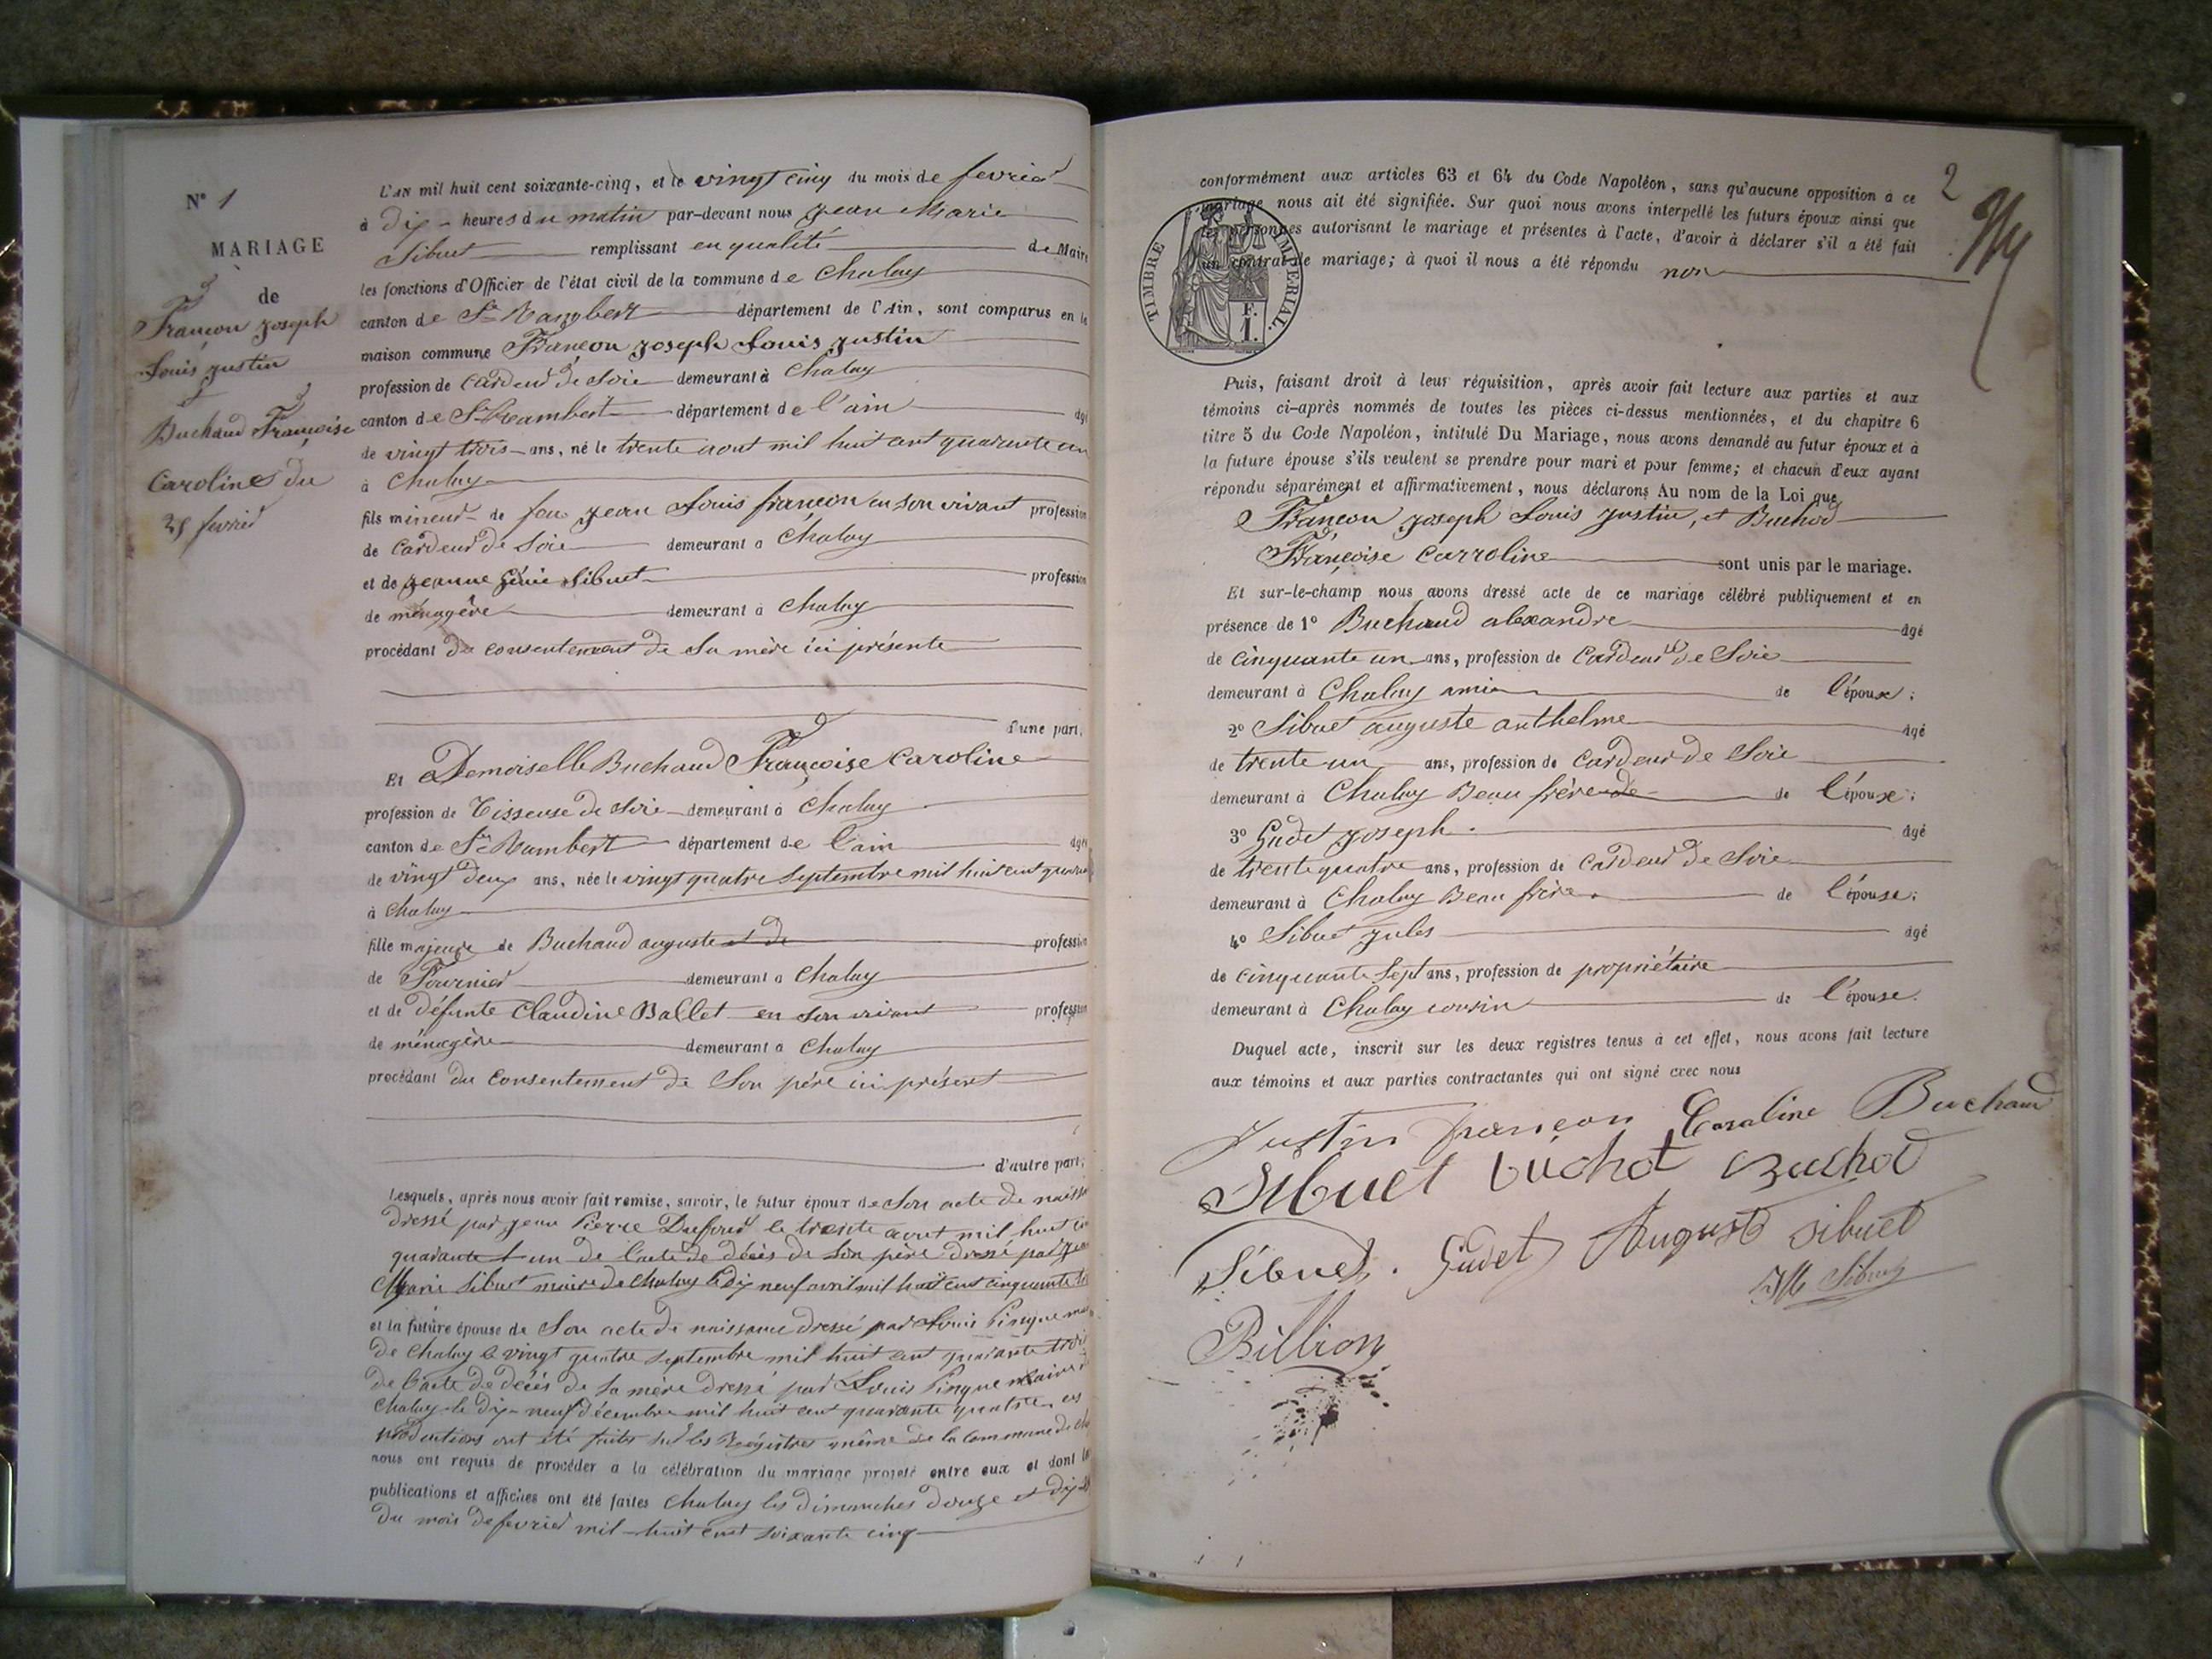 N° 1
MARIAGE
de
Françon Joseph
Louis Justin
et
Buchaud Françoise
Caroline du
25 fevrier
L'AN mil huit cent soixante-cinq, et le vingt cinq du mois de fevrier
à dix heures du matin par-devant nous Jean Marie
Sibuet remplissant en qualité de Maire
les fonctions d'Officier de l'état civil de la commune de Chaley
canton de St Rambert département de l'Ain, sont comparus en la
maison commune Françon Joseph Louis Justin
profession de Cardeur de Soie demeurant à Chaley
canton de St Rambert département de l'ain âgé
de vingt trois ans, né le trente aout mil huit cent quarante un
à Chaley
fils mineur de feu Jean Louis françon en son vivant profession
de Cardeur de Soie demeurant a Chaley
et de Jeanne Sibuet profession
de ménagère demeurant à Chaley
procédant du consentement de Sa mère ici présente
d'une part,
Et Demoiselle Buchaud Françoise Caroline
profession de Tisseuse de Soie demeurant à Chaley
canton de St Rambert département de l'ain âgée
de vingt deux ans, née le vingt quatre Septembre mil huit cent
à Chaley
fille majeure de Buchaud auguste et de profession
de Fournier demeurant a Chaley
et de défunte Claudine Ballet en son vivant profession
de ménagère demeurant a Chaley
procédant du Consentement de Son père ici présent
d'autre part;
Lesquels, après nous avoir fait remise, savoir, le futur époux de Son acte de
dressé par Jean Pierre Dufour le trente aout mil huit
quarante un de l'acte de décès de Son père dressé par
Marie Sibuet maire de Chaley le dix neuf avril mil huit cent cinquante
et la future épouse de Son acte de naissance dressé par Louis Pingue
de Chaley le vingt quatre Septembre mil huit cent quarante
de l'acte de décès de Sa mère dressé par Louis Pingue maire
Chaley le dix-neuf décembre mil huit cent quarante quatre
productions ont été faites Sur les Registres même de la Commune de
nous ont requis de procéder a la célébration du mariage projeté entre eux et dont
publications et affiches ont été faites Chaley les dimanches douze et
du mois de fevrier mil huit cent soixante cinq
2
conformément aux articles 63 et 64 du Code Napoléon, sans qu'aucune opposition à ce
mariage nous ait été signifiée. Sur quoi nous avons interpellé les futurs époux ainsi que
les personnes autorisant le mariage et présentes à l'acte, d'avoir à déclarer s'il a été fait
un contrat de mariage; à quoi il nous a été répondu non
TIMBRE IMPERIAL.
F.
1.
Puis, faisant droit à leur réquisition, après avoir fait lecture aux parties et aux
témoins ci-après nommés de toutes les pièces ci-dessus mentionnées, et du chapitre 6
titre 5 du Code Napoléon, intitulé Du Mariage, nous avons demandé au futur époux et à
la future épouse s'ils veulent se prendre pour mari et pour femme; et chacun d'eux ayant
répondu séparément et affirmativement, nous déclarons Au nom de la Loi que
Françon Joseph Louis Justin, et Buchod
Françoise Carroline sont unis par le mariage.
Et sur-le-champ nous avons dressé acte de ce mariage célébré publiquement et en
présence de 1° Buchaud alexandre âgé
de Cinquante un ans, profession de Cardeur de Soie
demeurant à Chaley ami de l'épouse;
2° Sibuet auguste anthelme âgé
de trente un ans, profession de Cardeur de Soie
demeurant à Chaley Beau frère de de l'épouse;
3° Gudet Joseph âgé
de trente quatre ans, profession de Cardeur de Soie
demeurant à Chaley Beau frère de l'épouse;
4° Sibuet Jules âgé
de cinquante Sept ans, profession de propriétaire
demeurant à Chaley cousin de l'épouse.
Duquel acte, inscrit sur les deux registres tenus à cet effet, nous avons fait lecture
aux témoins et aux parties contractantes qui ont signé avec nous
Justin françon Caroline Buchaud
Sibuet buchot Buchod
Sibuet. Gudet August Sibuet
JM Sibuet
Billion